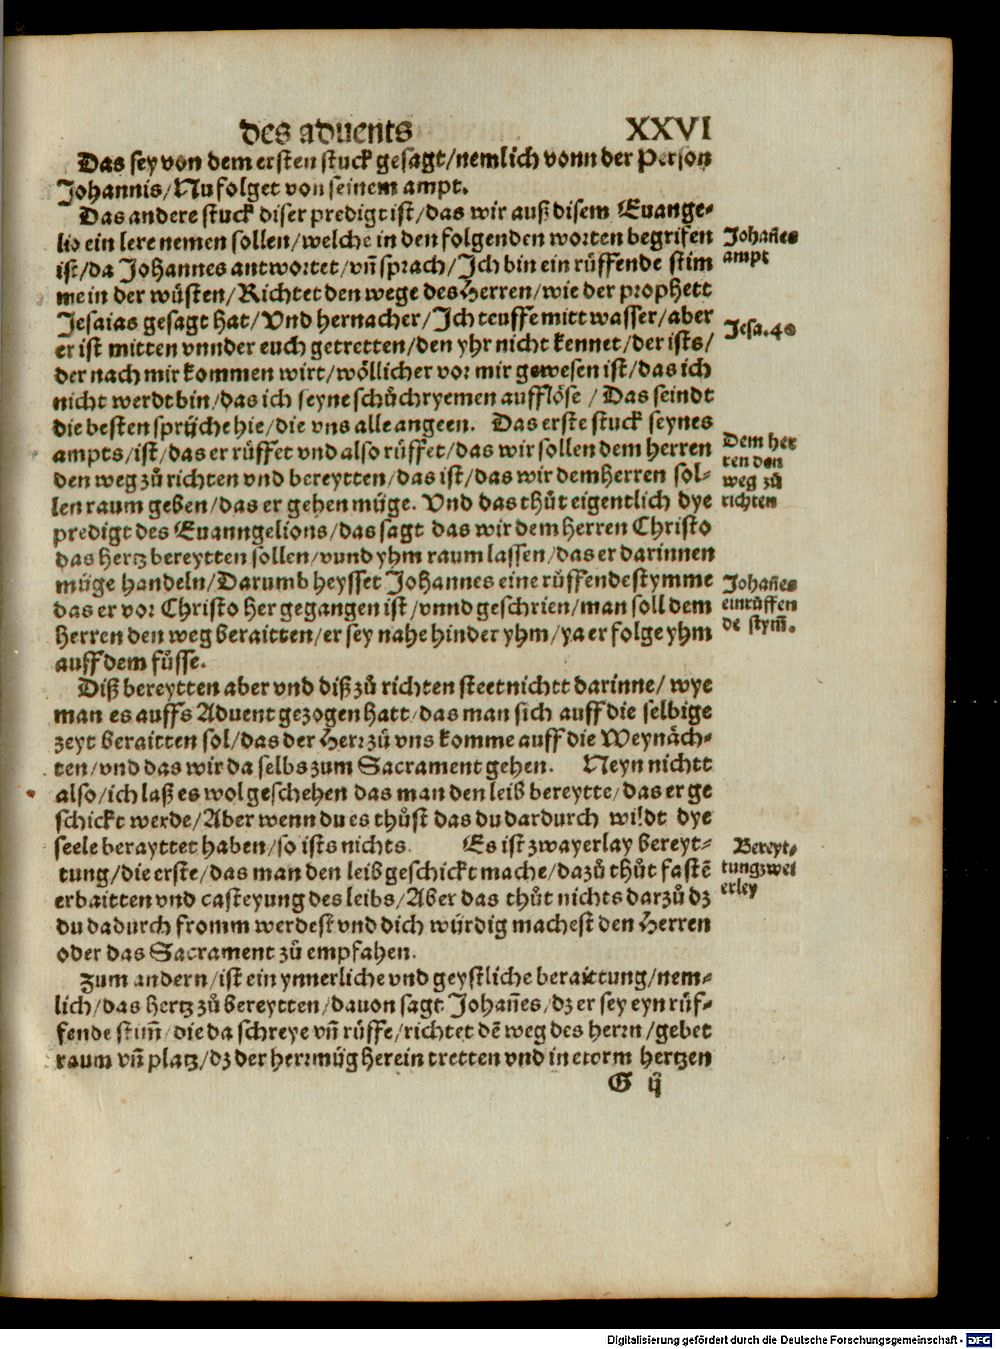 des aduents XXVI
Das sey von dem ersten stuck gesagt/nemlich vonn der Person
Johannis/Nu folget von seinem ampt.
Das andere stuck diser predigt ist/das wir auß disem Euange-
lio ein lere nemen sollen/welche in den folgenden worten begrifen
ist/da Johannes antwortet/vn̄ sprach/Ich bin ein růffende stim
me in der wüsten/Richtet den wege des Herren/wie der prophett
Jesaias gesagt hat/Vnd hernacher/Ich teuffe mitt wasser/aber
er ist mitten vnnder euch getretten/den yhr nicht kennet/der ists/
der nach mir kommen wirt/wöllicher vor mir gewesen ist/das ich
nicht werdt bin/das ich seyne schůchryemen aufflöse/Das seindt
die besten sprüche hie/die vns alle angeen. Das erste stuck seynes
ampts/ist/das er růffet vnd also růffet/das wir sollen dem herren
den weg zů richten vnd bereytten/das ist/das wir dem Herren sol-
len raum geben/das er gehen müge. Vnd das thůt eigentlich dye
predigt des Euanngelions/das sagt das wir dem Herren Christo
das hertz bereytten sollen/vnnd yhm raum lassen/das er darinnen
müge handeln/Darumb heysset Johannes eine růffende stymme
das er vor Christo her gegangen ist/vnnd geschrien/man soll dem
Herren den weg beraitten/er sey nahe hinder yhm/ya er folge yhm
auff dem füsse.
Diß bereytten aber vnd diß zů richten steet nichtt darinne/wye
man es auffs Aduent gezogen hatt/das man sich auff die selbige
zeyt beraitten sol/das der Herr zů vns komme auff die Weynäch-
ten/vnd das wir da selbs zum Sacrament gehen. Neyn nichtt
also/ich laß es wol geschehen das man den leib bereytte/das er ge
schickt werde/Aber wenn du es thůst das du dardurch wildt dye
seele berayttet haben/so ists nichts. Es ist zwayerlay bereyt-
tung/die erste/das man den leib geschickt mache/dazů thůt fastē
erbaitten vnd casteyung des leibs/Aber das thůt nichts darzů dz
du dadurch fromm werdest vnd dich würdig machest den Herren
oder das Sacrament zů empfahen.
Zum andern/ist ein ynnerliche vnd geystliche beraittung/nem-
lich/das hertz zů bereytten/dauon sagt Johan̄es/dz er sey eyn růf-
fende stim̄/die da schreye vn̄ růffe/richtet dē weg des herrn/gebet
raum vn̄ platz/dz der herr müg herein tretten vnd in ewrm hertzen
G ij
Johan̄es
ampt
Jesa. 40
Dem her
ren den
weg zů
richten
Johan̄es
ein růffen
de stym̄.
Bereyt-
tung zwei
erley
Digitalisierung gefördert durch die Deutsche Forschungsgemeinschaft - DFG